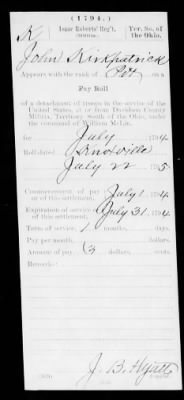 (1794.)
K Isaac Roberts' Reg't, Ter. So. of
the Ohio.
John Kirkpatrick
Appears with the rank of Pvt on a
Pay Roll
of a detachment of troops in the service of the
United States, at or from Davidson County
Militia, Territory South of the Ohio, under
the command of William
for July , 1794
Roll dated Knoxville
July 22 , 1795
Commencement of pay
or of this settlement, July 1 , 1794
Expiration of service
or of this settlement, July 31 , 1794
Term of service, 1 months, days.
Pay per month, dollars, cents.
Amount of pay, (3 dollars, cents.
Remarks:
J. B. Hyatt